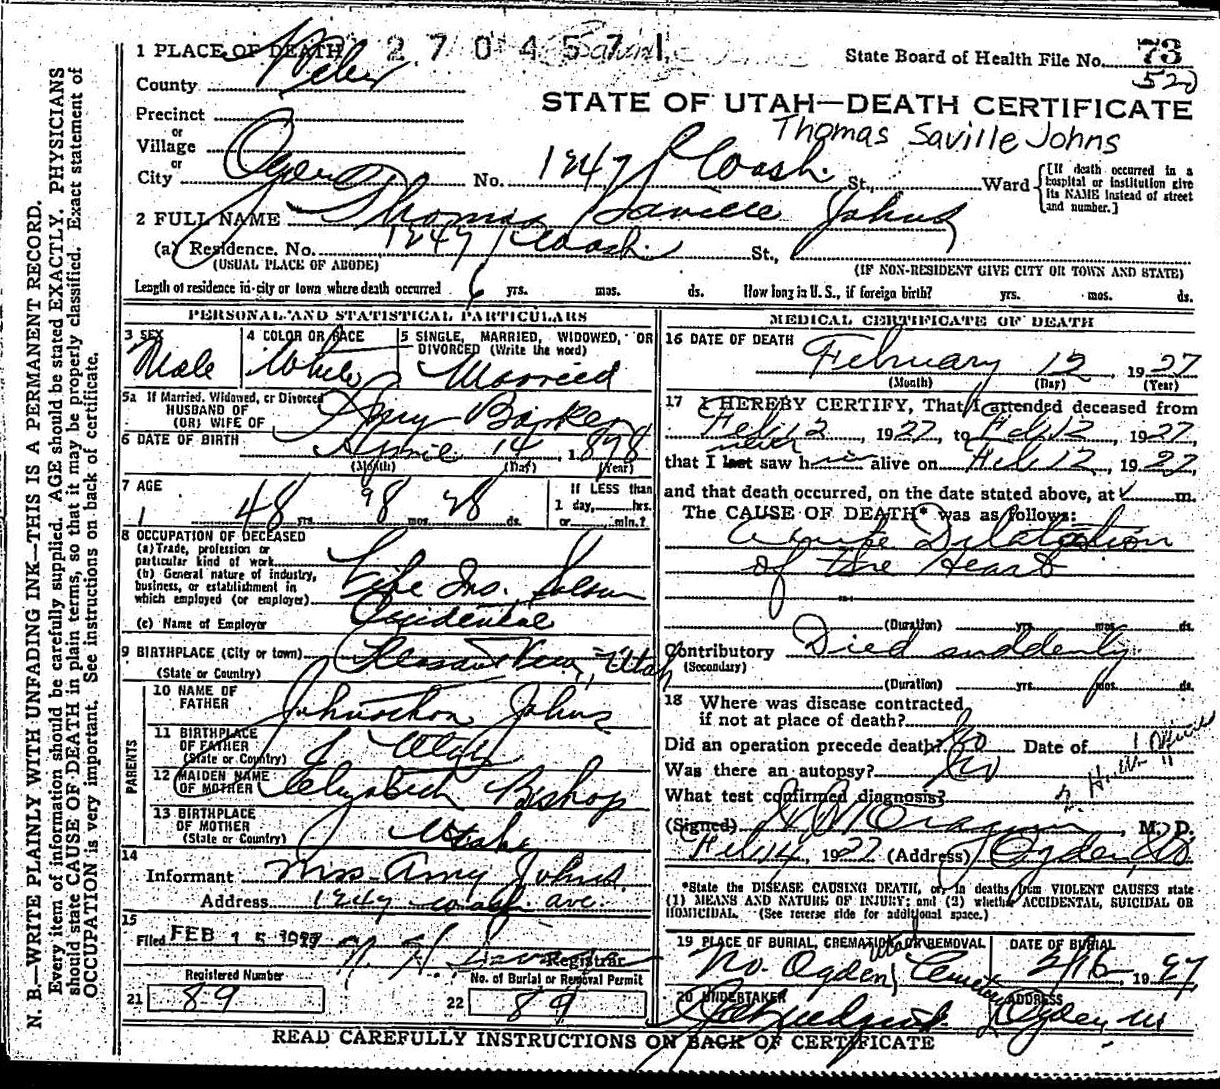 1 PLACE OF DEATH 2 7 0 4 5 7 1
State Board of Health File No. 73
520
County Weber
STATE OF UTAH—DEATH CERTIFICATE
Thomas Saville Johns
Precinct
or
Village
or
City Ogden No. 1247 St., Ward
[If death occurred in a
hospital or institution give
its NAME instead of street
and number.]
2 FULL NAME Thomas Saville Johns
(a) Residence. No. 1247 St.,
(USUAL PLACE OF ABODE) (IF NON-RESIDENT GIVE CITY OR TOWN AND STATE)
Length of residence in city or town where death occurred 6 yrs. mos. ds. How long in U. S., if foreign birth? yrs. mos. ds.
PERSONAL AND STATISTICAL PARTICULARS
3 SEX
Male
4 COLOR OR RACE
White
5 SINGLE, MARRIED, WIDOWED, OR
DIVORCED (Write the word)
Married
5a If Married, Widowed, or Divorced
HUSBAND OF
(OR) WIFE OF Amy Barker
6 DATE OF BIRTH April 14 1878
(Month) (Day) (Year)
7 AGE
48 yrs. 9 mos. 28 ds.
If LESS than
1 day, hrs.
or min.?
8 OCCUPATION OF DECEASED
(a) Trade, profession or
particular kind of work
(b) General nature of industry,
business, or establishment in
which employed (or employer) Life Ins.
(c) Name of Employer Occidental
9 BIRTHPLACE (City or town) Pleasant View, Utah
(State or Country)
PARENTS
10 NAME OF
FATHER Johns
11 BIRTHPLACE
OF FATHER
(State or Country) Utah
12 MAIDEN NAME
OF MOTHER Elizabeth Bishop
13 BIRTHPLACE
OF MOTHER
(State or Country) Utah
14
Informant Mrs Amy Johns.
Address 1247 ave.
15
Filed FEB 15 1927 Registrar
Registered Number
21 89
No. of Burial or Removal Permit
22 89
MEDICAL CERTIFICATE OF DEATH
16 DATE OF DEATH
February 12, 1927
(Month) (Day) (Year)
17 I HEREBY CERTIFY, That I attended deceased from
Feb. 12, 1927, to Feb. 12, 1927,
never
that I last saw him alive on Feb 12, 1927,
and that death occurred, on the date stated above, at m.
The CAUSE OF DEATH* was as follows:
Acute Dilatation
of the Heart
(Duration) yrs. mos. ds.
Contributory Died suddenly
(Secondary)
(Duration) yrs. mos. ds.
18 Where was disease contracted
if not at place of death?
Did an operation precede death? No Date of
Was there an autopsy? No
What test confirmed diagnosis?
(Signed) , M. D.
Feb 14, 1927 (Address) Ogden
*State the DISEASE CAUSING DEATH, or, in deaths from VIOLENT CAUSES state
(1) MEANS AND NATURE OF INJURY; and (2) whether ACCIDENTAL, SUICIDAL OR
HOMICIDAL. (See reverse side for additional space.)
19 PLACE OF BURIAL, CREMATION OR REMOVAL
No. Ogden, Utah Cemetery
DATE OF BURIAL
2/16, 1927
20 UNDERTAKER
ADDRESS
Ogden
READ CAREFULLY INSTRUCTIONS ON BACK OF CERTIFICATE
N. B.—WRITE PLAINLY WITH UNFADING INK—THIS IS A PERMANENT RECORD.
Every item of information should be carefully supplied. AGE should be stated EXACTLY. PHYSICIANS
should state CAUSE OF DEATH in plain terms, so that it may be properly classified. Exact statement of
OCCUPATION is very important. See instructions on back of certificate.